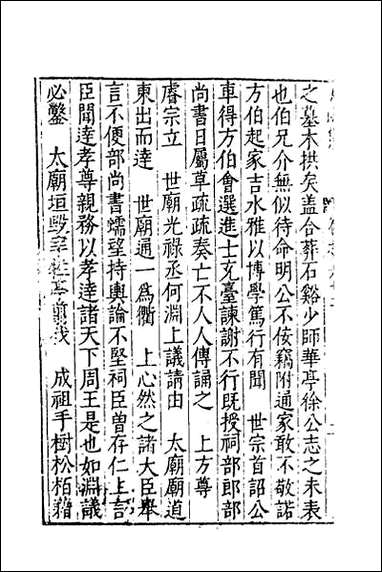 之墓木拱矣盖合葬石谿少師華亭徐公志之未表
也伯兄介無似待命明公不佞竊附通家敢不敬諾
方伯起家吉水雅以博學篤行有聞 世宗首詔公
車得方伯會選進士文臺諫謝不行既授祠部郎部
尚書日屬草疏疏奏亡不人人傳誦之 上方尊
睿宗立 世廟光祿丞何淵上議請由 太廟廟道
東出而達 世廟通一爲衢 上心然之諸大臣舉
言不便部尚書蠕望持輿論不堅祠臣曾存仁上言
臣聞達孝尊親務以孝達諸天下周王是也如淵議
必鑿 太廟垣毀 成祖手樹松栢藉